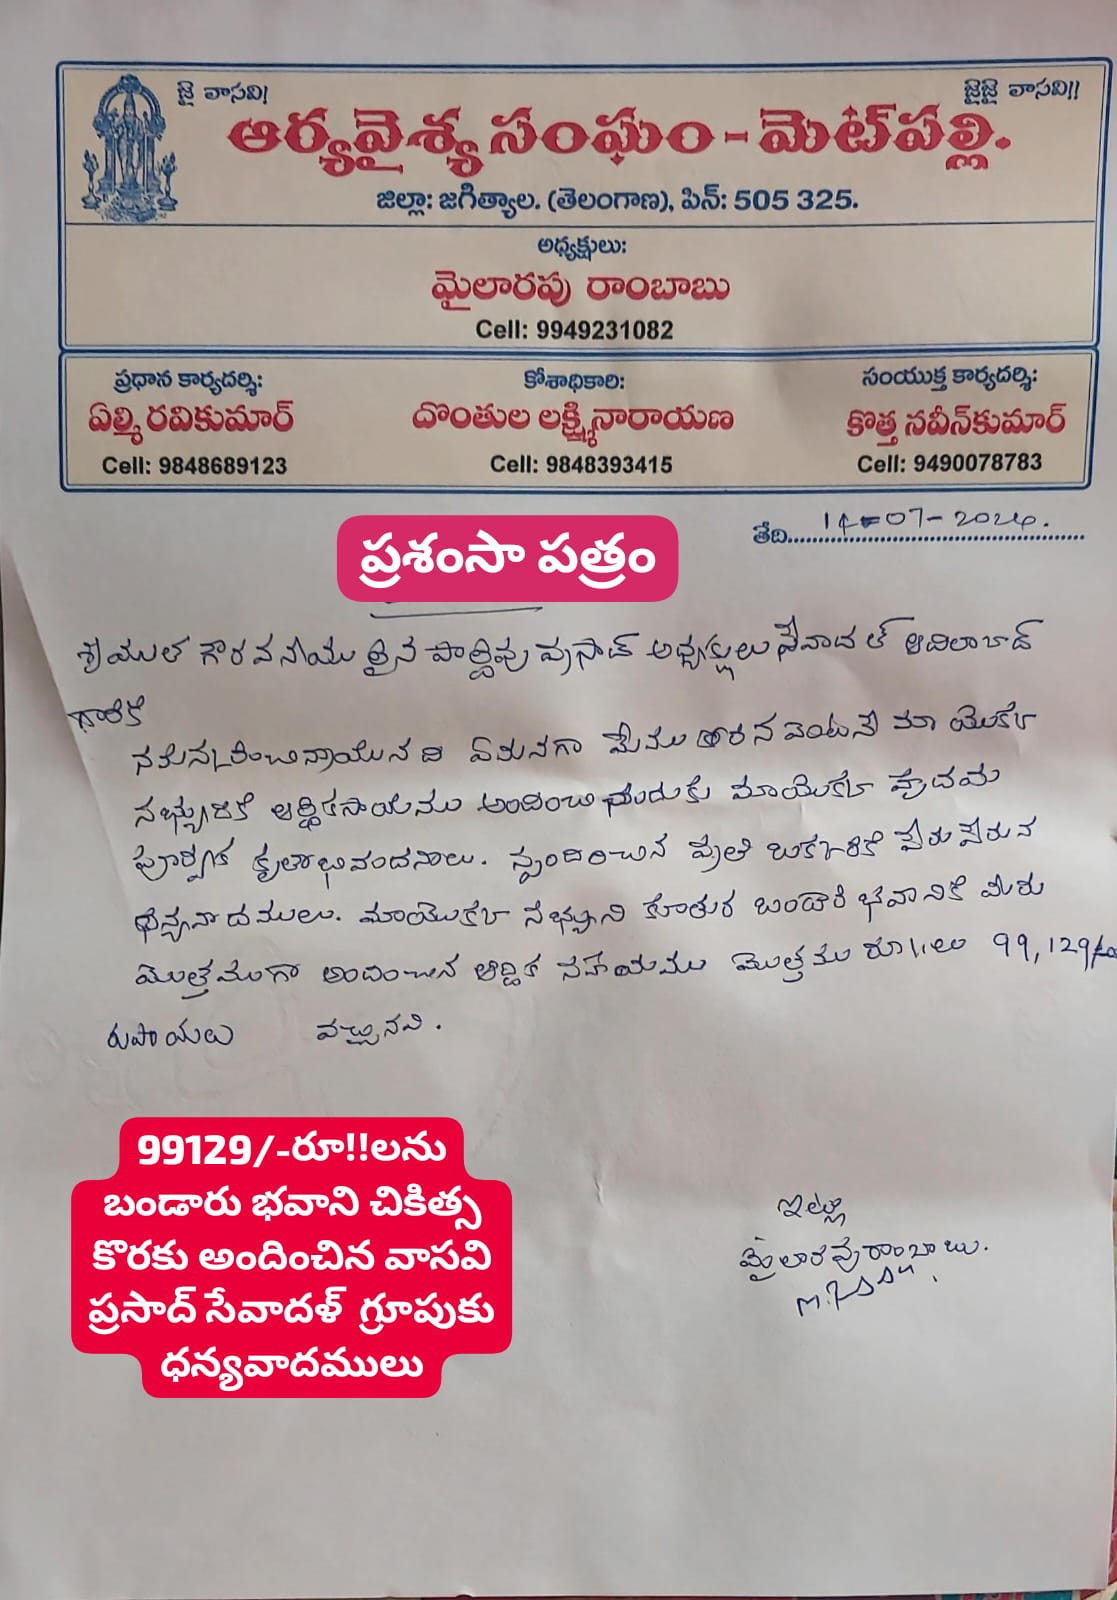 జై వాసవి!
జైజై వాసవి!!
ఆర్యవైశ్య సంఘం - మెట్‌పల్లి.
జిల్లా: జగిత్యాల. (తెలంగాణ), పిన్: 505 325.
అధ్యక్షులు:
మైలారపు రాంబాబు
Cell: 9949231082
ప్రధాన కార్యదర్శి:
ఏల్మి రవికుమార్
Cell: 9848689123
కోశాధికారి:
దొంతుల లక్ష్మీనారాయణ
Cell: 9848393415
సంయుక్త కార్యదర్శి:
కొత్త నవీన్‌కుమార్
Cell: 9490078783
తేది 14-07-2024.
ప్రశంసా పత్రం
శ్రీయుత గౌరవనీయులైన ప్రసాద్ అధ్యక్షులు సేవాదళ్ ఆదిలాబాద్
గారికి
నమస్కరించి వ్రాయునది ఏమనగా మేము కోరిన వెంటనే మా యొక్క
సభ్యురికి ఆర్థికసాయము అందించినందుకు మాయొక్క హృదయ
పూర్వక కృతాభివందనాలు. స్పందించిన ప్రతి ఒక్కరికి పేరు పేరున
ధన్యవాదములు. మాయొక్క సభ్యుని కూతుర బండారి భవానికి మీరు
మొత్తముగా అందించిన ఆర్థిక సహాయము మొత్తము రూ!!లు 99,129/-
రుపాయలు వచ్చినవి.
99129/-రూ!!లను
బండారు భవాని చికిత్స
కొరకు అందించిన వాసవి
ప్రసాద్ సేవాదళ్ గ్రూపుకు
ధన్యవాదములు
ఇట్లు
మైలారపు రాంబాబు.